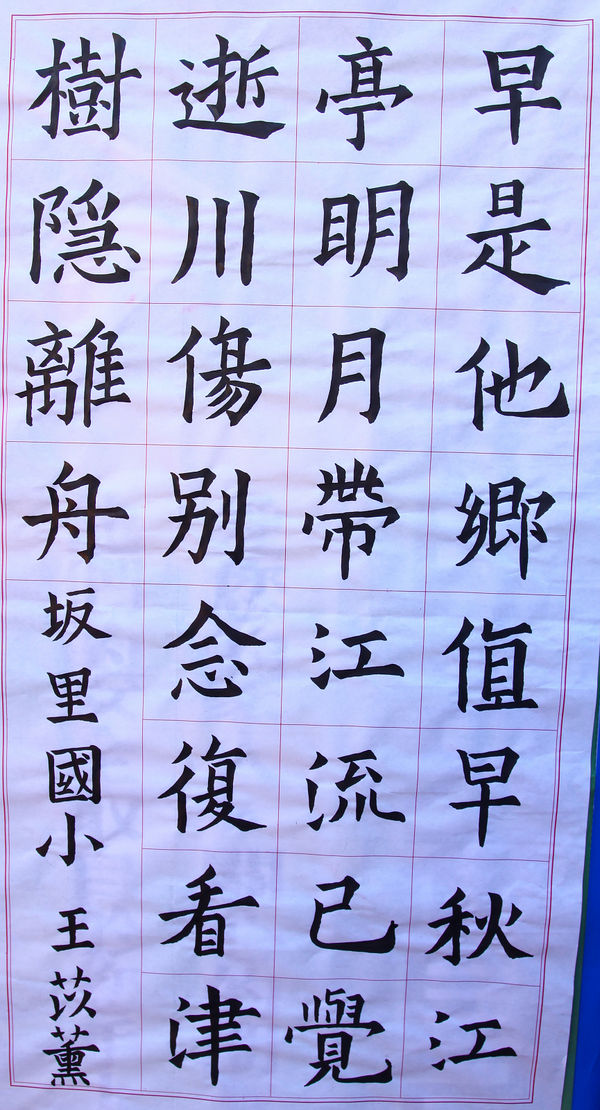 早是他鄉值早秋江
亭明月帶江流已覺
逝川傷別念復看津
樹隱離舟
坂里國小 王苡薰